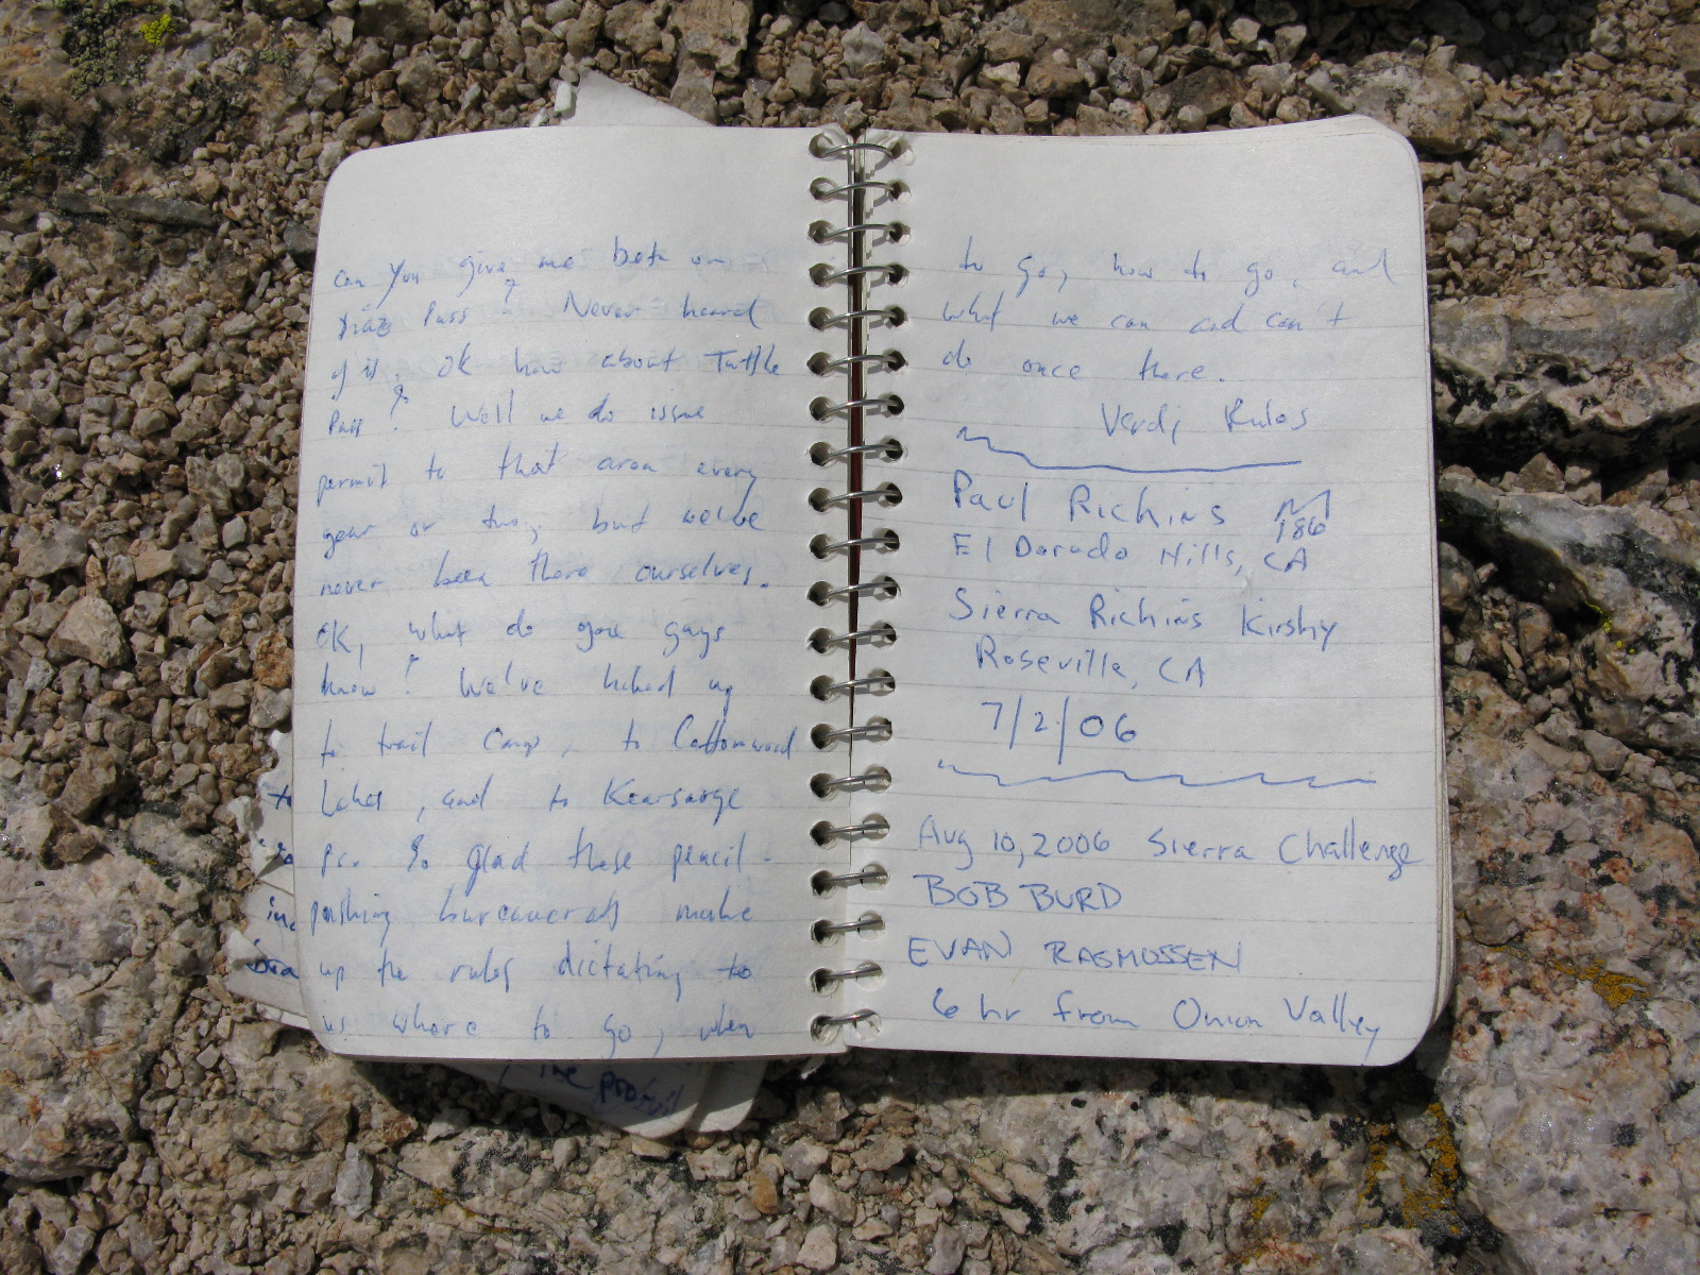 can you give me beta on
Diaz Pass? Never heard
of it. OK how about Tuttle
Pass? Well we do issue
permit to that area every
year or two, but we've
never been there ourselves.
OK, what do you guys
know? We've hiked up
to trail camp, to Cottonwood
Lakes, and to Kearsarge
So glad these pencil-
pushing bureaucrats make
up the rules dictating to
us where to go, when
to go, how to go, and
what we can and can't
do once there.
Verdi Rules
Paul Richins
186
El Dorado Hills, CA
Sierra Richins Kirshy
Roseville, CA
7/2/06
Aug 10, 2006 Sierra Challenge
BOB BURD
EVAN RASMUSSEN
6 hr from Onion Valley
the